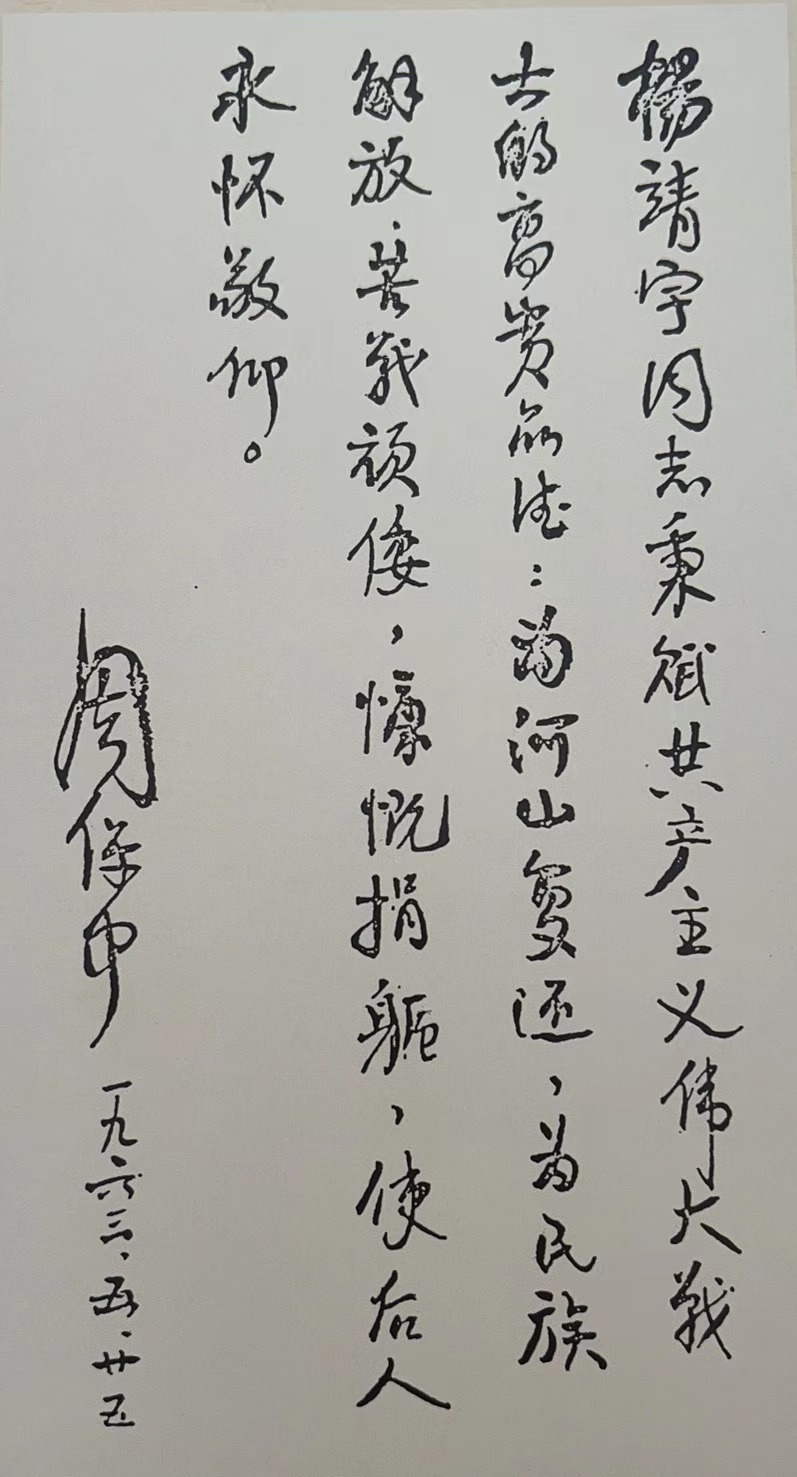 楊靖宇同志秉赋共产主义伟大戰
士的高贵品德：为河山复还，为民族
解放、苦战顽倭，慷慨捐躯，使后人
永怀敬仰。
周保中
一九六三、五、廿五